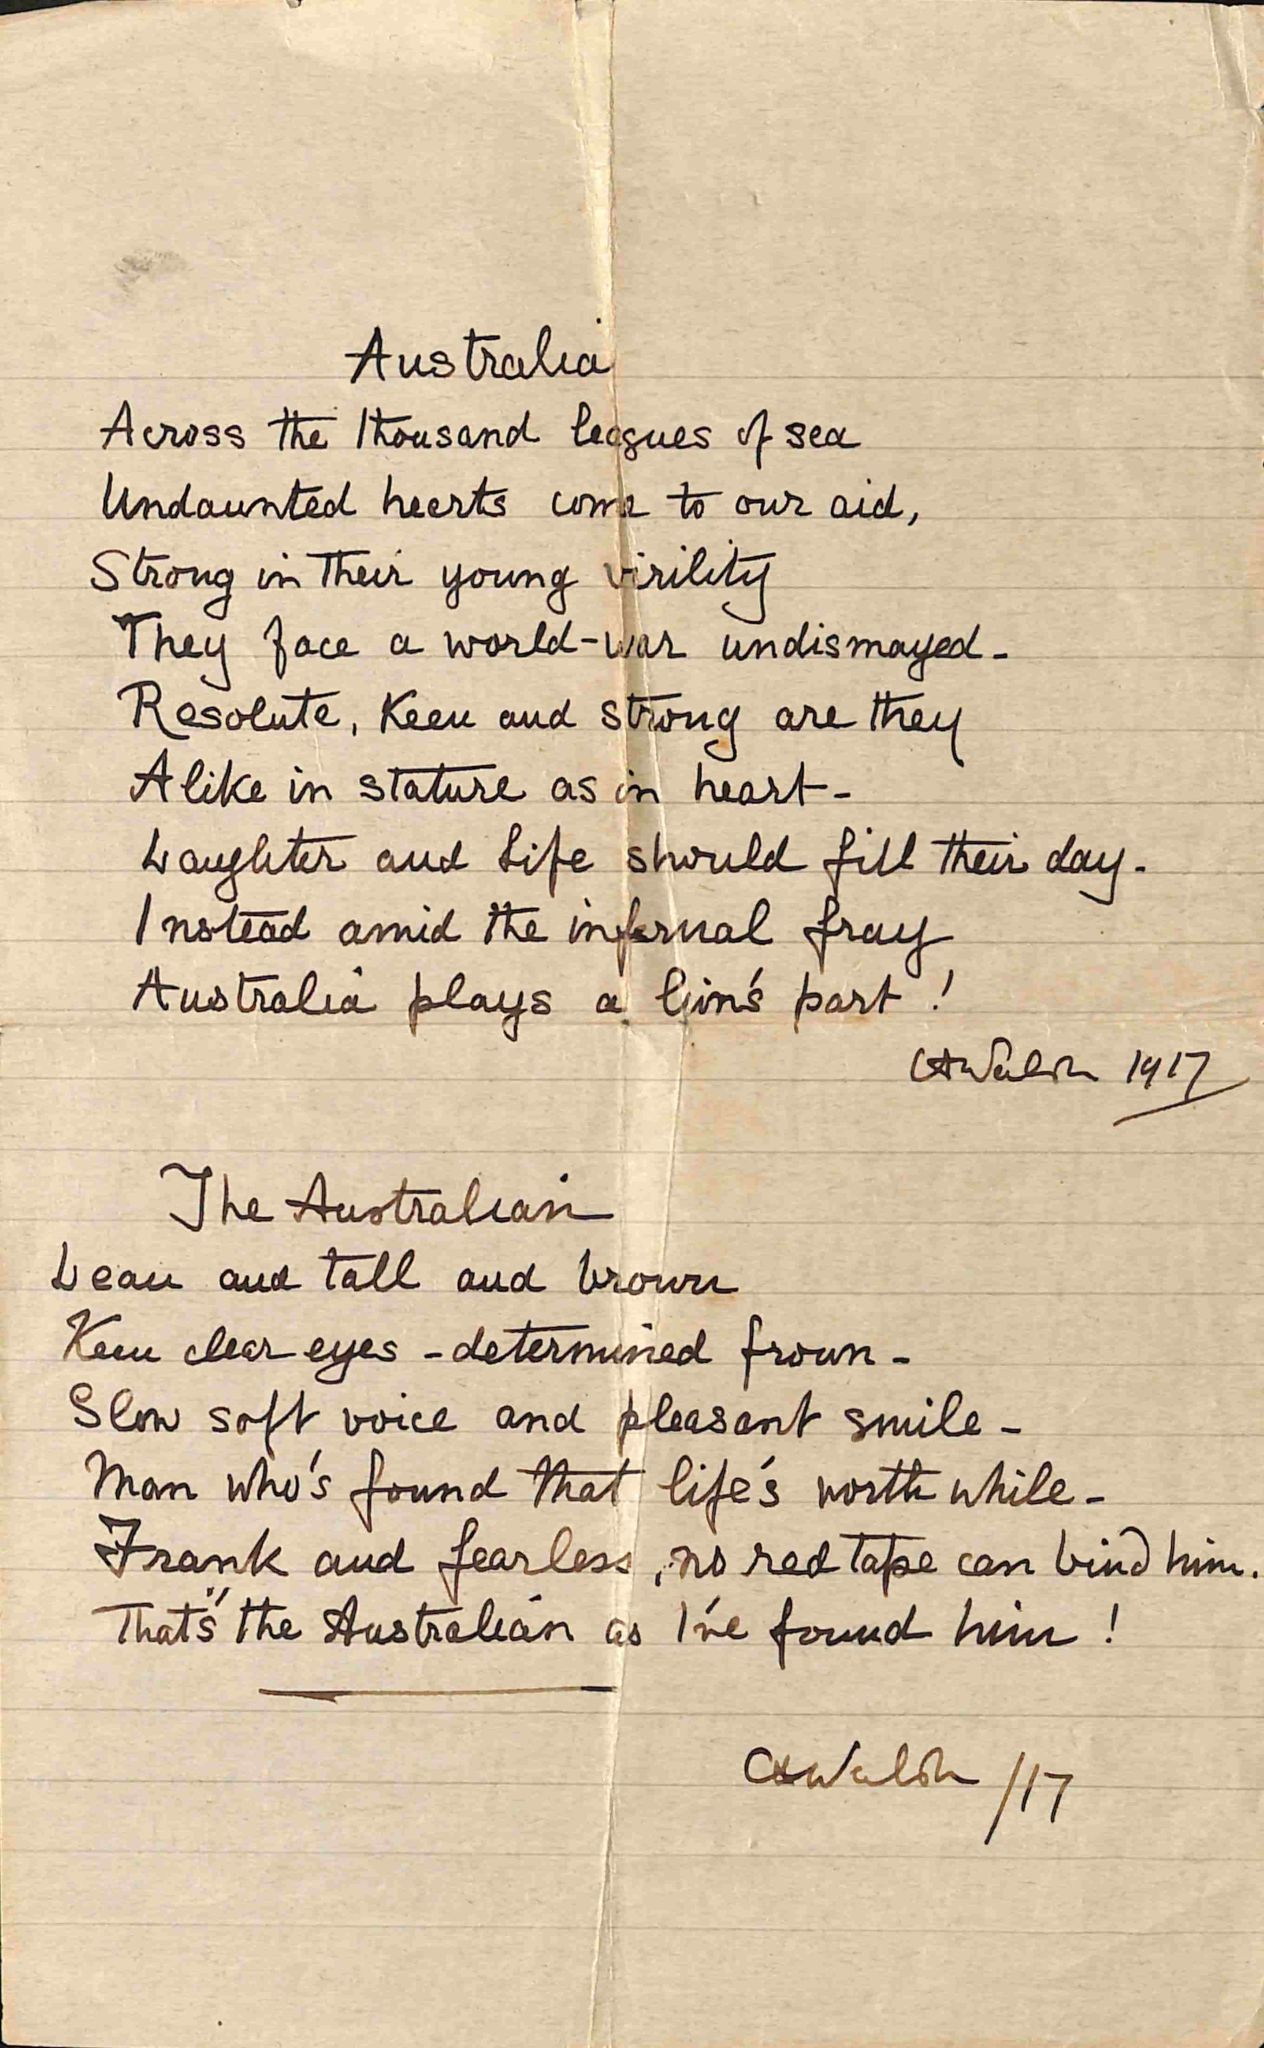 Australia
Across the thousand leagues of sea
Undaunted hearts come to our aid,
Strong in their young virility
They face a world-war undismayed -
Resolute, Keen and strong are they
Alike in stature as in heart -
Laughter and Life should fill their day -
Instead amid the infernal fray
Australia plays a lion's part !
CA Walsh 1917
The Australian
Lean and tall and brown
Keen clear eyes - determined frown -
Slow soft voice and pleasant smile -
Man who's found that life's worth while -
Frank and fearless, no red tape can bind him.
"That's" the Australian as I've found him !
CA Walsh /17